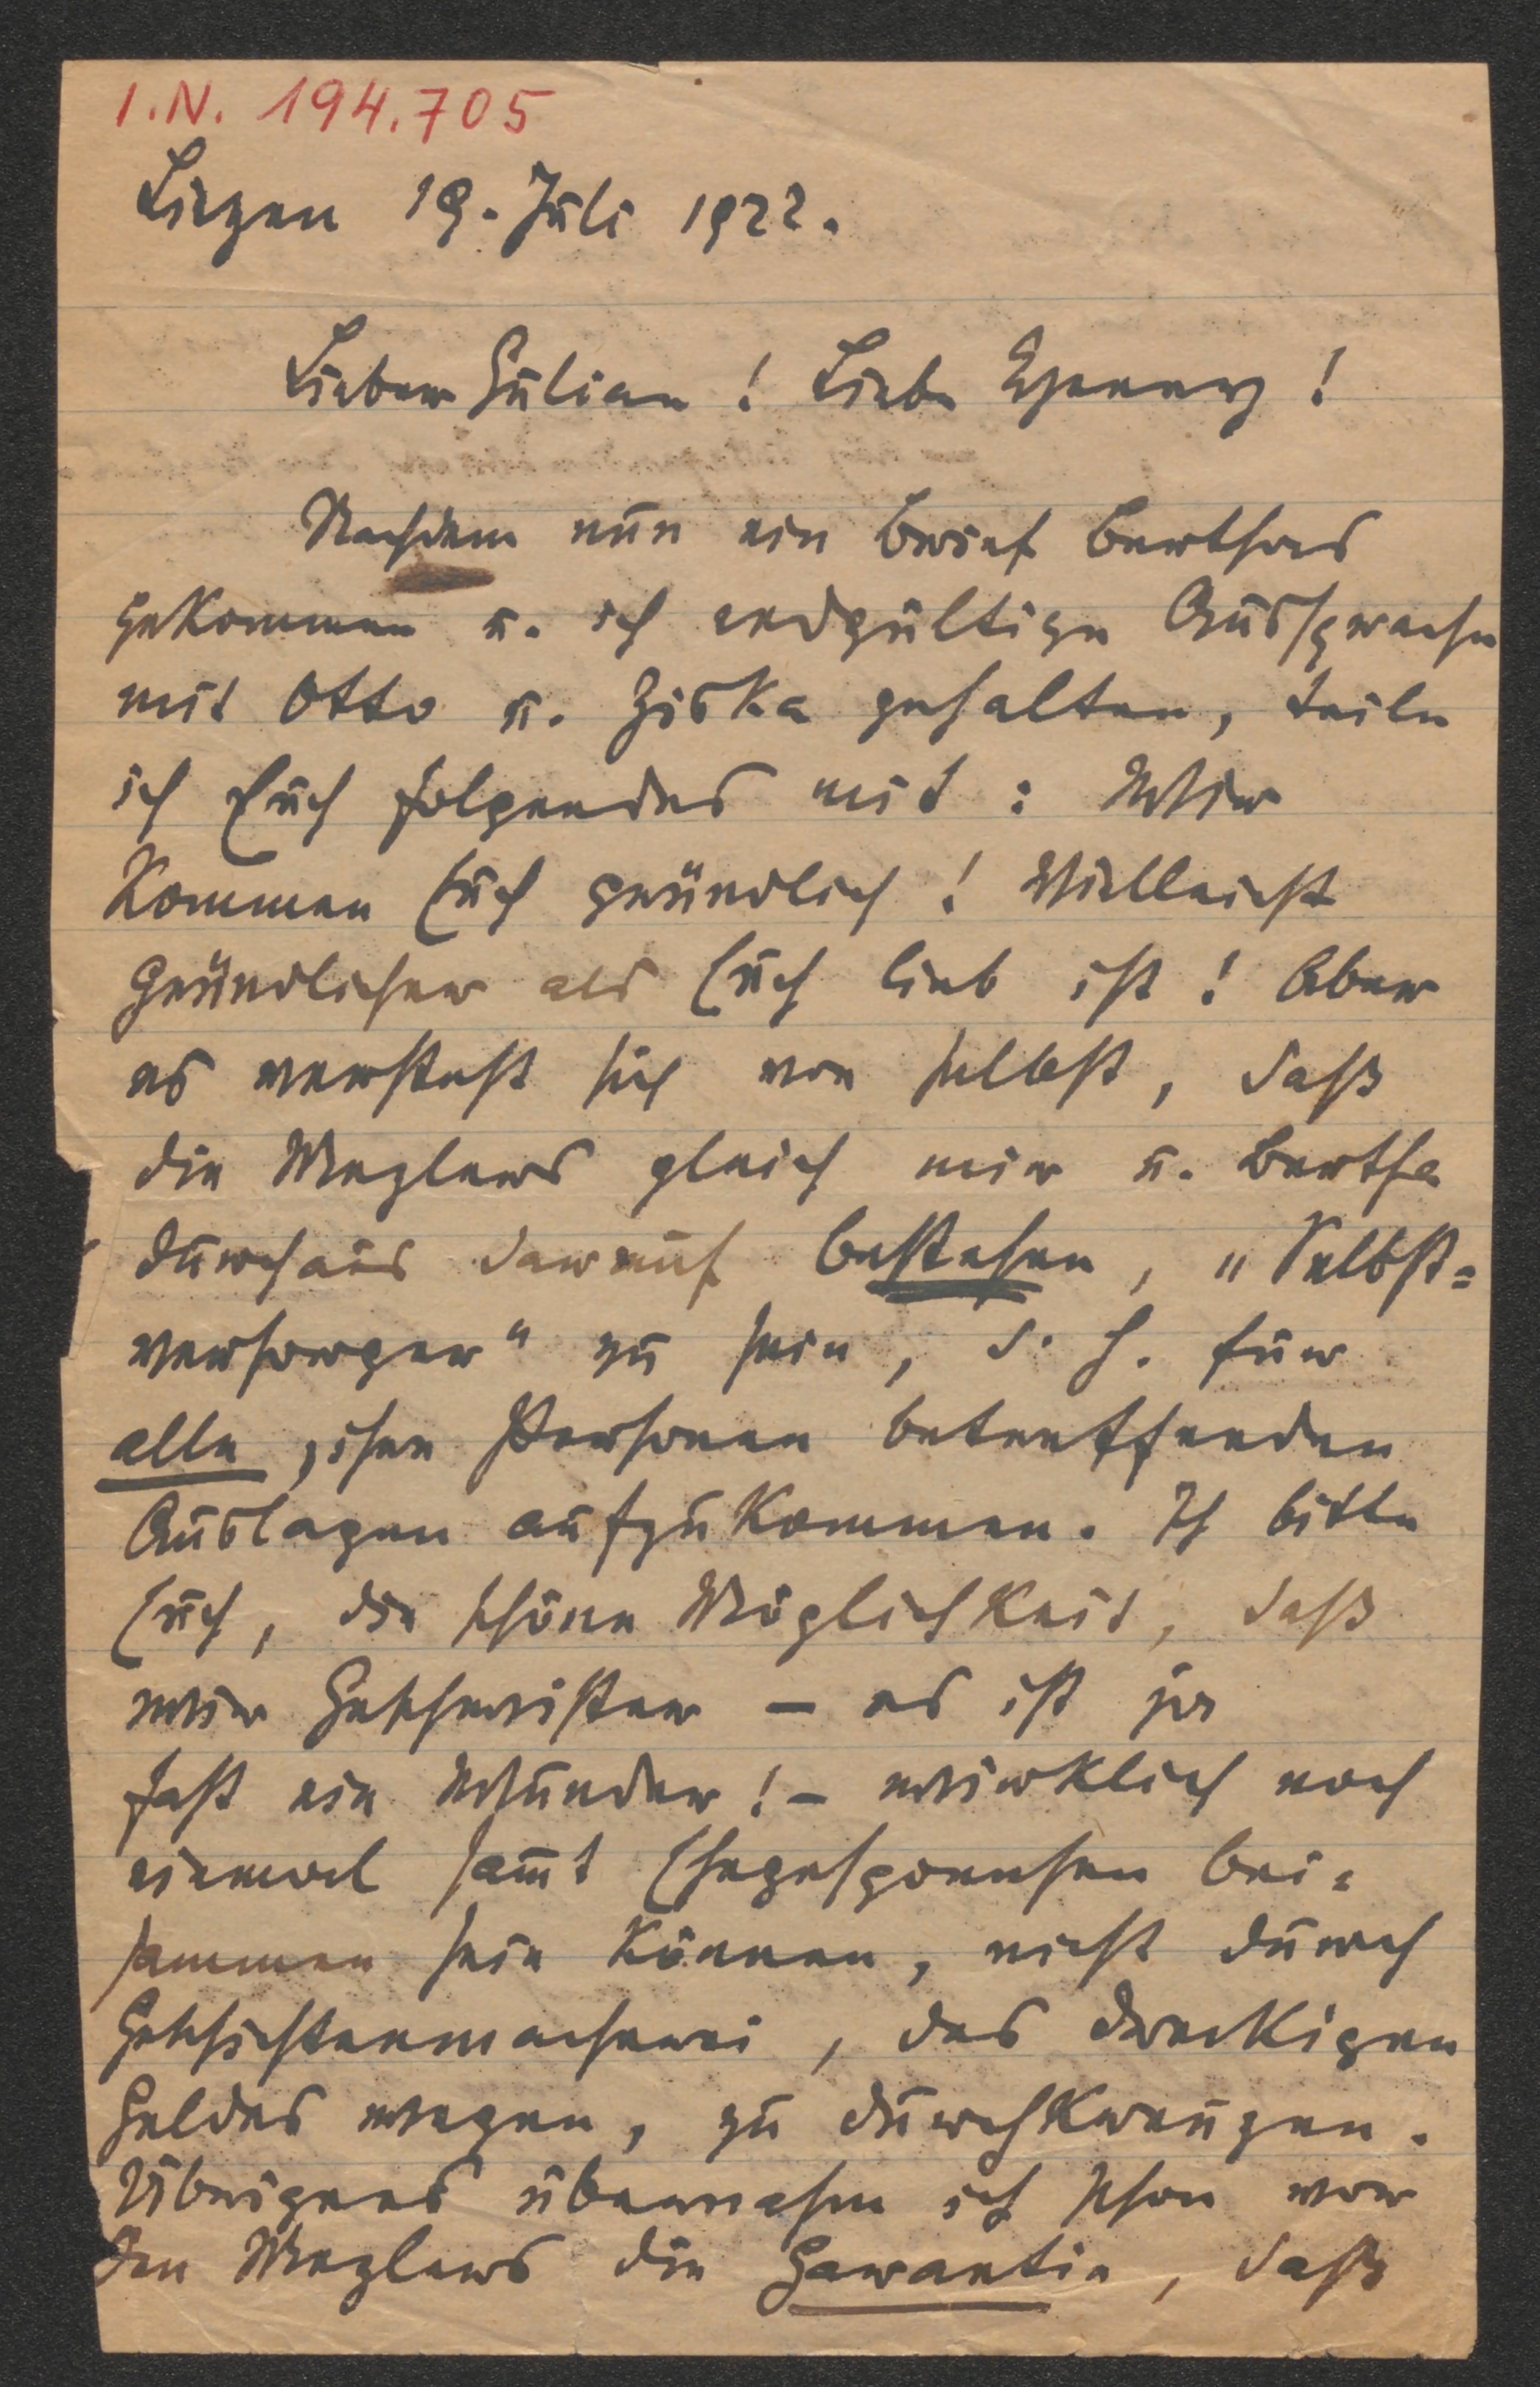 I.N. 194.705
Liezen 19. Juli 1922.
Lieber Julian! Liebe Thenny!
Nachdem nun ein Brief Berthas
gekommen u. ich endgültige Aussprache
mit Otto u. Ziska gehalten, teile
ich Euch folgendes mit: Wir
kommen Euch gründlich! Vielleicht
Gründlicher als Euch lieb ist! Aber
es versteht sich von selbst, daß
die Mezlers gleich mir u. Bertha
durchaus darauf bestehen, „Selbst=
versorger" zu sein, d. h. für
alle, ihre Personen betreffenden
Auslagen aufzukommen. Ich bitte
Euch, die schöne Möglichkeit, daß
wir Geschwister – es ist ja
fast ein Wunder! – wirklich noch
einmal sam̅t Ehegesponsen bei=
sammen sein können, nicht durch
Geschichtenmacherei, des dreckigen
Geldes wegen, zu durchkreuzen.
Übrigens übernahm ich schon vor
den Mezlers die Garantie, daß